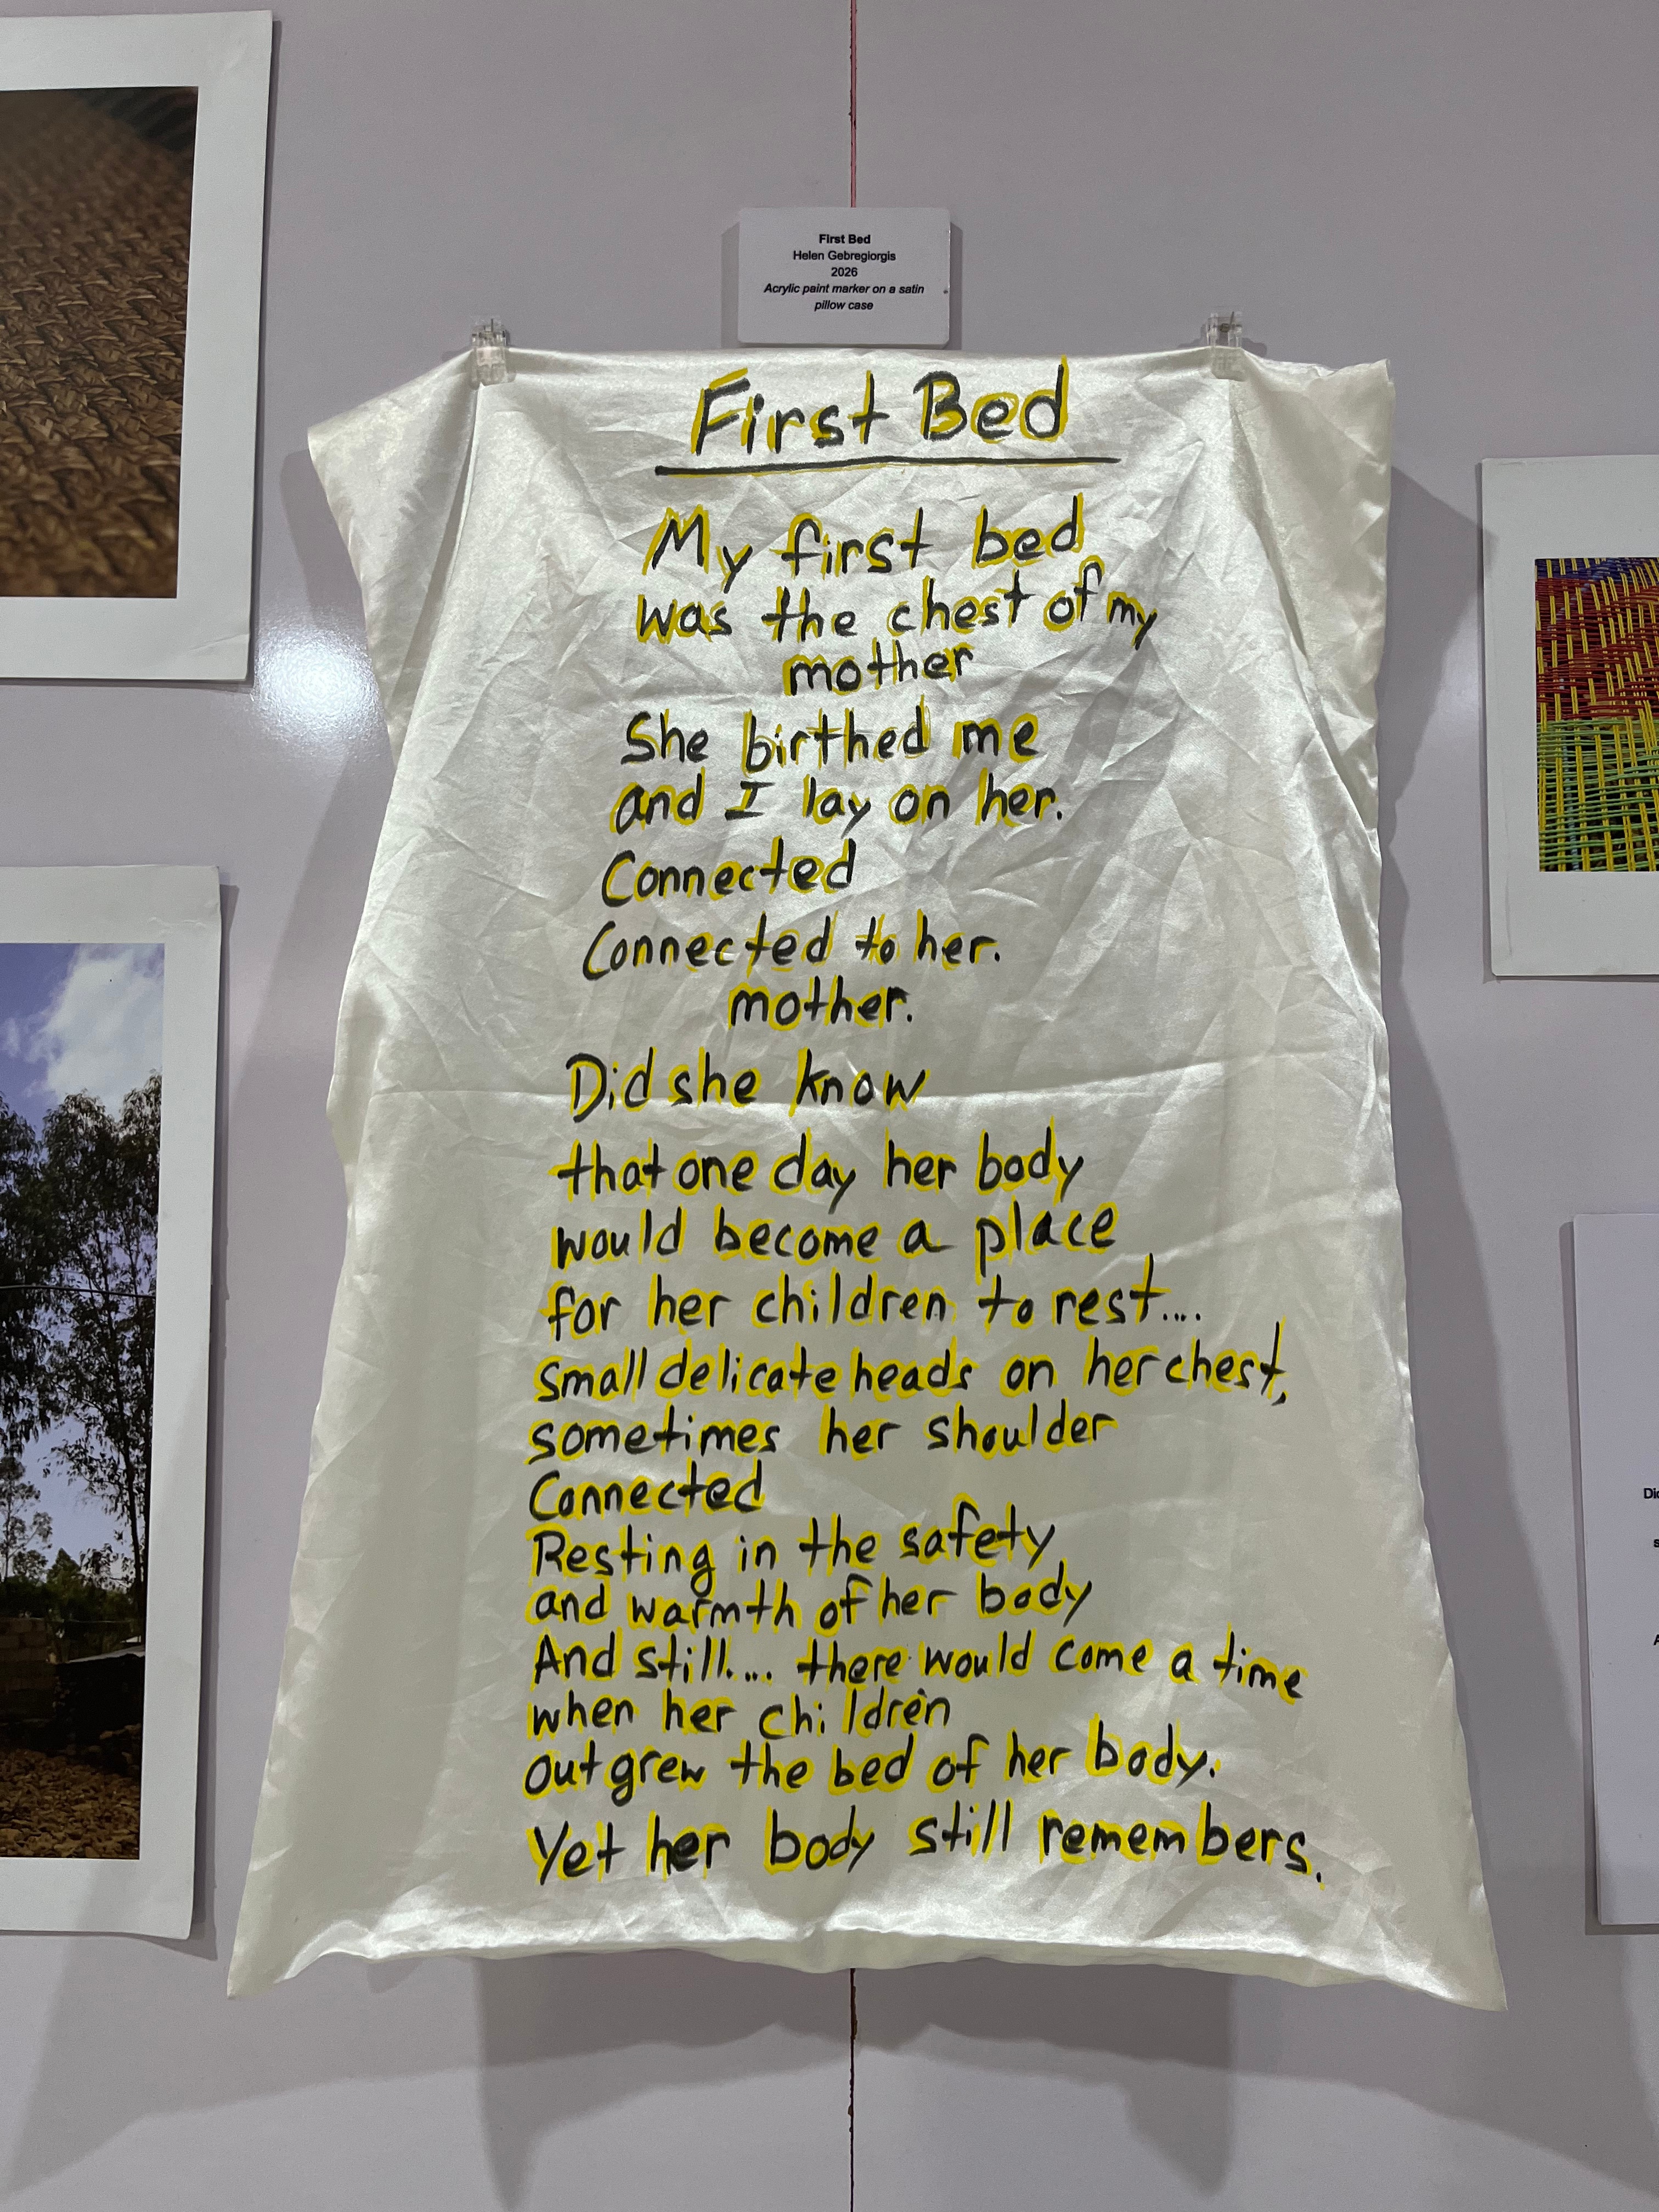 First Bed
Helen Gebregiorgis
2026
Acrylic paint marker on a satin
pillow case
First Bed
My first bed
was the chest of my
mother
She birthed me
and I lay on her.
Connected
Connected to her.
mother.
Did she know
that one day her body
would become a place
for her children to rest....
small delicate heads on her chest,
sometimes her shoulder
Connected
Resting in the safety
and warmth of her body
And still.... there would come a time
when her children
outgrew the bed of her body.
Yet her body still remembers.